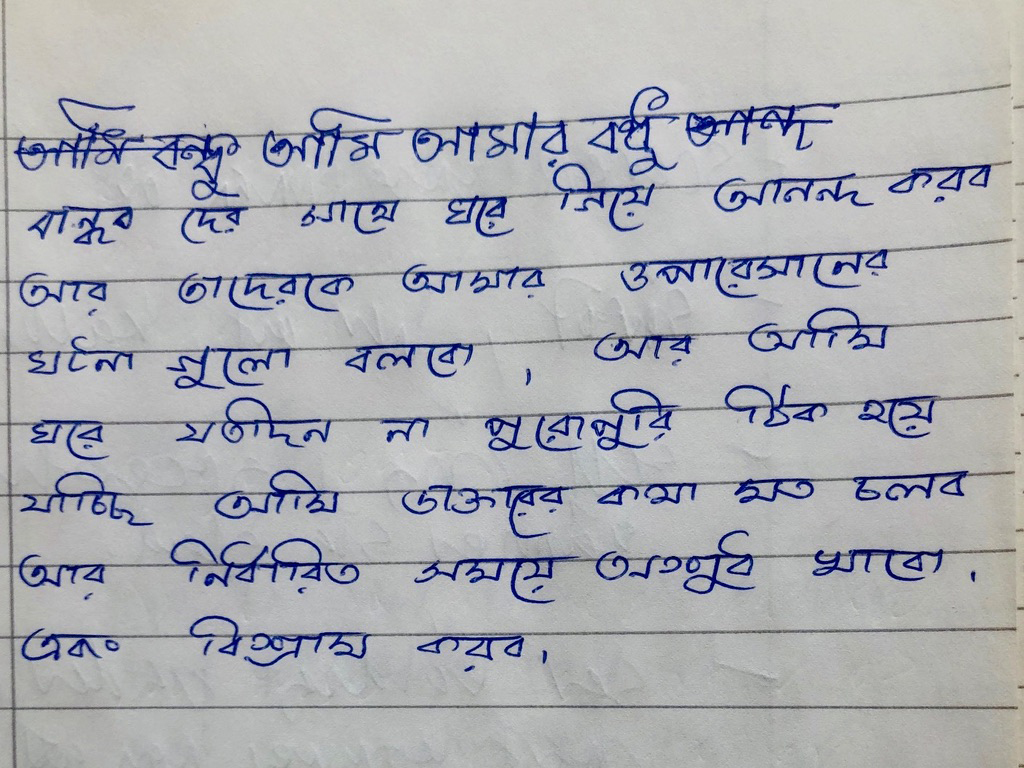 আমি বন্ধু আমি আমার বন্ধু আন্দ
বান্ধব দের সাথে ঘরে গিয়ে আনন্দ করব
আর তাদেরকে আমার ওপারেসানের
ঘটনা গুলো বলবো, আর আমি
ঘরে যতদিন না পুরোপুরি ঠিক হয়ে
যাচ্ছি আমি ডাক্তারের কথা মত চলব
আর নির্ধারিত সময়ে খাবো,
এবং বিশ্রাম করব,